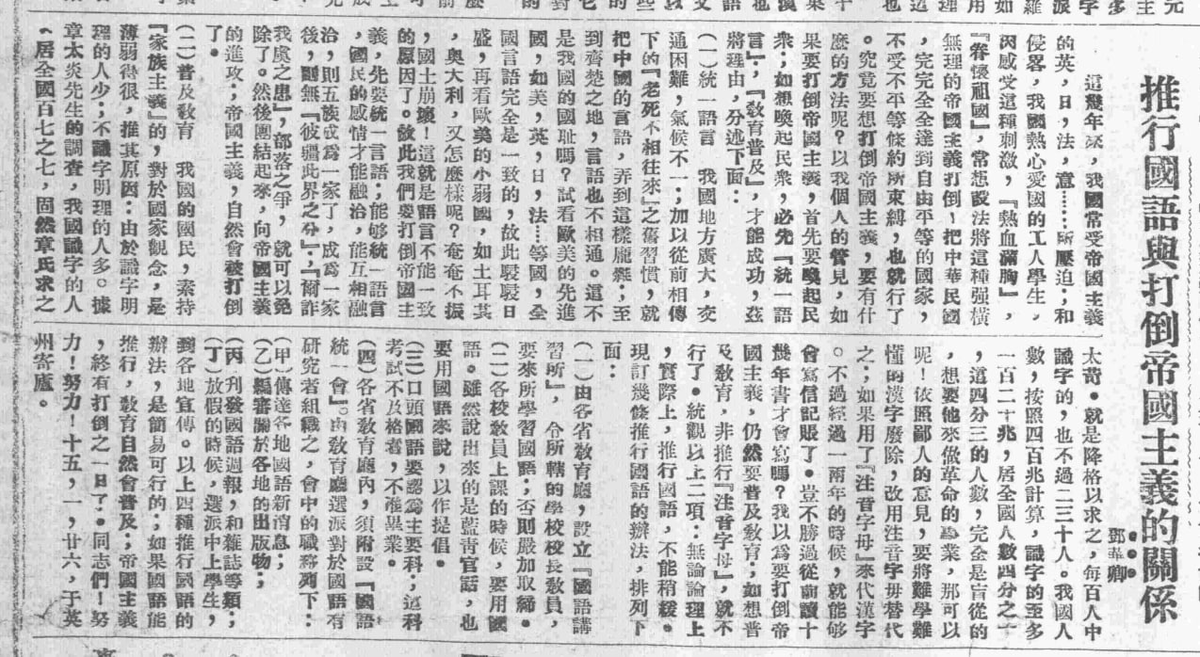 推行國語與打倒帝國主義的關係
鄧華卿
這幾年來,我國常受帝國主義
的英,日,法,意……所壓迫,和
侵畧,我國熱心愛國的工人學生,
因感受這種刺激,『熱血滿胸』,
『眷懷祖國』,常想設法將這種强橫
無理的帝國主義打倒!把中華民國
,完完全全達到自由平等的國家,
不受不平等條約所束縛,也就行了
。究竟要想打倒帝國主義,要有什
麽的方法呢?以我個人的管見,如
果要打倒帝國主義,首先要喚起民
衆;如想喚起民衆,必先『統一語
言』,『敎育普及』,才能成功,茲
將理由,分述下面:
(一)統一語言 我國地方廣大,交
通困難,氣候不一;加以從前相傳
下的『老死不相往來』之舊習慣,就
把中國的言語,弄到這樣龐雜;至
到齊楚之地,言語也不相通。這不
是我國的國恥嗎?試看歐美的先進
國,如美,英,日,法…等國,全
國言語完全是一致的,故此駸駸日
盛,再看歐美的小弱國,如土耳其
,奧大利,又怎麽樣呢?奄奄不振
,國土崩壞!這就是語言不能一致
的原因了。故此我們要打倒帝國主
義,先要統一言語;能够統一語言
,國民的感情才能融洽,能互相融
洽,則五族成爲一家了,成爲一家
後,則無『彼疆此界之分』,『爾詐
我虞之患』,部落之爭,就可以免
除了。然後團結起來,向帝國主義
的進攻;帝國主義,自然會被打倒
了。
(二)普及敎育 我國的國民,素持
『家族主義』的,對於國家觀念,是
薄弱得很,推其原因:由於識字明
理的人少;不識字明理的人多。據
章太炎先生的調查,我國識字的人
(居全國百七之七,固然章氏求之
太苛。就是降格以求之,每百人中
識字的,也不過二三十人。我國人
數,按照四百兆計算,識字的至多
一百二十兆,居全國人數四分之一
,這四分三的人數,完全是盲從的
,想要他來做革命的事業,那可以
呢!依照鄙人的意見,要將難學難
懂的漢字廢除,改用注音字母替代
之;如果用了『注音字母』來代漢字
。不過經過一兩年的時候,就能够
會寫信記賬了。豈不勝過從前讀十
幾年書才會寫嗎?我以爲要打倒帝
國主義,仍然要普及敎育;如想普
及敎育,非推行『注音字母』,就不
行了。統觀以上二項:無論論理上
,實際上,推行國語,不能稍緩。
現訂幾條推行國語的辦法,排列下
面:
(一)由各省敎育廳,設立『國語講
習所』,令所轄的學校校長敎員,
要來所學習國語;否則嚴加取締。
(二)各校敎員上課的時候,要用國
語。雖然說出來的是藍靑官話,也
要用國語來說,以作提倡。
(三)口頭國語要認爲主要科;這科
考試不及格者,不准畢業。
(四)各省敎育廳內,須附設『國語
統一會』。由敎育廳選派對於國語有
研究者組織之,會中的職務列下:
(甲)傳達各地國語新消息;
(乙)編審關於各地的出版物;
(丙)刋發國語週報,和雜誌等類;
(丁)放假的時候,選派中上學生,
到各地宣傳。以上四種推行國語的
辦法,是簡易可行的;如果國語能
推行,敎育自然會普及;帝國主義
,終有打倒之一日了。同志們!努
力!努力!十五,一,廿六,于英
州寄廬。